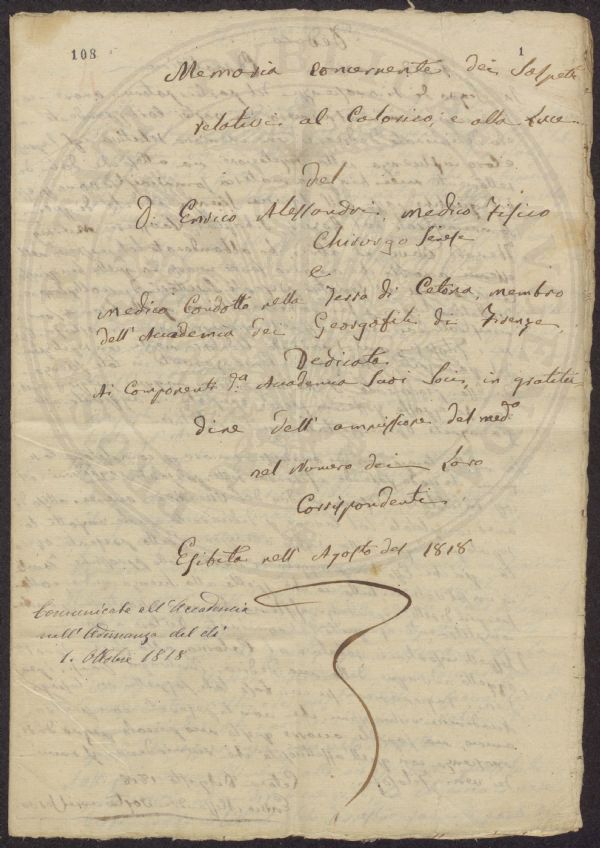 108
1
Memoria concernente dei Sospetti
relativi al Calorico, e alla Luce
del
D. Enrico Alessandri, Medico Fisico
Chirurgo Senese
e
Medico Condotto nella Terra di Cetona, membro
dell'Accademia dei Georgofili di Firenze,
Dedicata
Ai Componenti da. Accademia Suoi Soci, in gratitu
dine dell'ammissione del medo.
nel Numero dei Loro
Corrispondenti.
Esibita nell'Agosto del 1818
Comunicate all'Accademia
nell'Adunanza del dì
1. Ottobre 1818